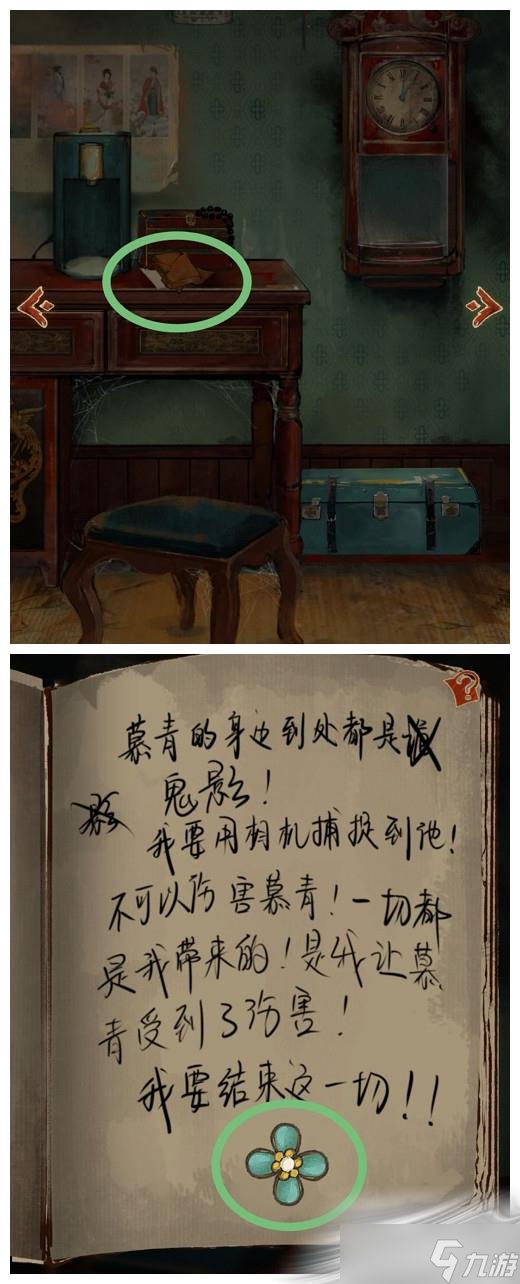 慕青的身边到处都是
鬼影！
我要用相机捕捉到他！
不可以伤害慕青！一切都
是我带来的！是我让慕
青受到了伤害！
我要结束这一切！！
九游